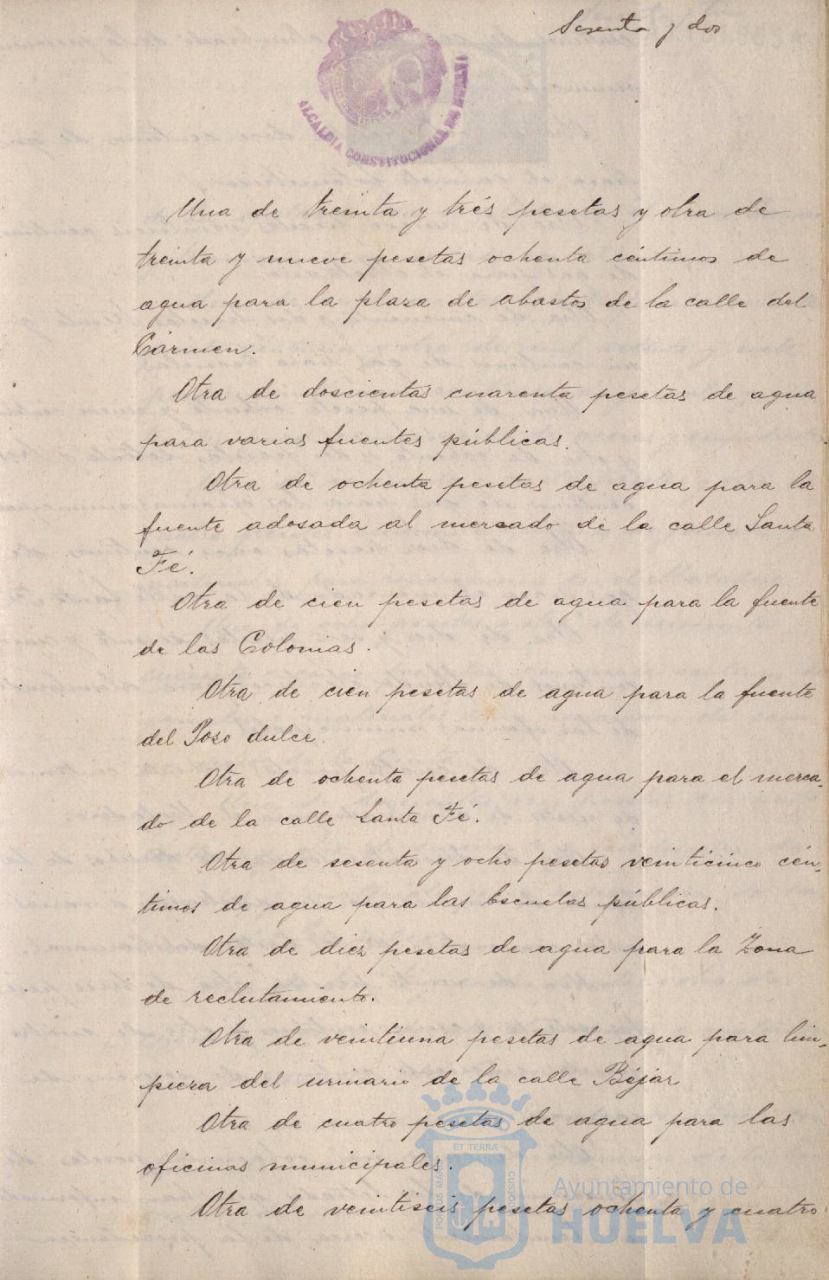 Sesenta y dos
ALCALDIA CONSTITUCIONAL DE HUELVA
Una de treinta y trés pesetas y otra de
treinta y nueve pesetas ochenta céntimos de
agua para la plaza de abastos de la calle del
Cármen.
Otra de doscientas cuarenta pesetas de agua
para varias fuentes públicas.
Otra de ochenta pesetas de agua para la
fuente adosada al mercado de la calle Santa
Fé.
Otra de cien pesetas de agua para la fuente
de las Colonias.
Otra de cien pesetas de agua para la fuente
del Poso dulce.
Otra de ochenta pesetas de agua para el merca-
do de la calle Santa Fé.
Otra de sesenta y ocho pesetas veinticinco cén-
timos de agua para las Escuelas públicas.
Otra de diez pesetas de agua para la Zona
de reclutamiento.
Otra de veintiuna pesetas de agua para lim-
pieza del urinario de la calle Béjar
Otra de cuatro pesetas de agua para las
oficinas municipales.
Otra de veintiseis pesetas ochenta y cuatro
ET TERRÆ
PORTUS MARIS
CUSTODIA
Ayuntamiento de
HUELVA